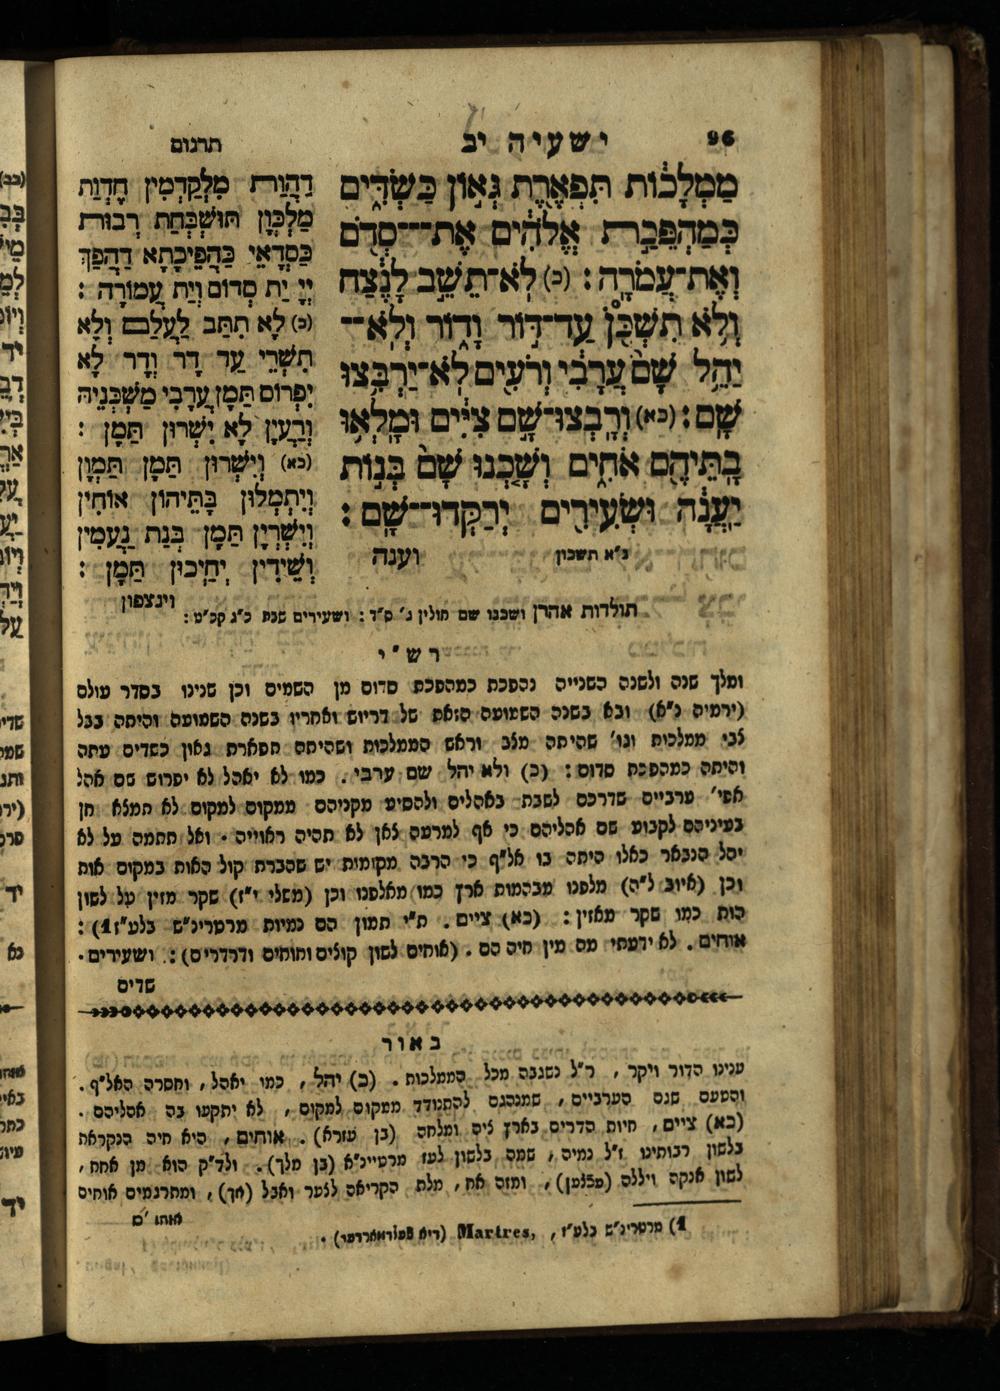 96
ישעיה יב
תרגום
מַמְלָכוֹת תִּפְאֶרֶת גְּאוֹן כַּשְׂדִּים
כְּמַהְפֵּכַת אֱלֹהִים אֶת־סְדֹם
וְאֶת־עֲמֹרָה : (כ) לֹא־תֵשֵׁב לָנֶצַח
וְלֹא תִשְׁכֹּן עַד־דּוֹר וָדוֹר וְלֹא־
יַהֵל שָׁם עֲרָבִי וְרֹעִים לֹא־יַרְבִּצוּ
שָׁם : (כא) וְרָבְצוּ־שָׁם צִיִּים וּמָלְאוּ
בָתֵּיהֶם אֹחִים וְשָׁכְנוּ שָׁם בְּנוֹת
יַעֲנָה וּשְׂעִירִים יְרַקְּדוּ־שָׁם :
נ״א תשכון
וענה
דַהֲוַת מִלְקַדְמִין חֶדְוַת
מַלְכְוָן תּוּשְׁבְּחַת רְבוּת
כַּסְדָאֵי כַּהֲפֵיכָתָא דַהֲפַךְ
יְיָ יַת סְדוֹם וְיַת עֲמוֹרָה :
(כ) לָא תִתַּב לַעֲלַם וְלָא
תִשְׁרֵי עַד דָר וְדָר לָא
יִפְרוֹס תַּמָן עֲרָבִי מַשְׁכְּנֵיהּ
וְרַעְיָן לָא יִשְׁרוּן תַּמָן :
(כא) וְיִשְׁרוּן תַּמָן תַּמְוָן
וְיִתְמְלוּן בָּתֵּיהוֹן אוֹחִין
וְיִשְׁרְיָן תַּמָן בְּנַת נַעֲמִין
וְשֵׁידִין יְחַיְכוּן תַּמָן :
וינצפון
תולדות אהרן ושכנו שם חולין נ׳ ס״ד : ושעירים שבת כ״ג קכ״ט :
רש״י
ומלך שנה ולשנה השנייה נהפכת כמהפכת סדום מן השמים וכן שנינו בסדר עולם
(ירמיה נ״א) ובא בשנה השמועה הזאת של דריוש ואחריו בשנה השמועה והיתה בבל
צבי ממלכות וגו׳ שהיתה מצב וראש הממלכות ושהיתה תפארת גאון כשדים עתה
והיתה כמהפכת סדום : (כ) ולא יהל שם ערבי . כמו לא יאהל לא יפרוש שם אהל
אפי׳ ערביים שדרכם לשבת באהלים ולהסיע מקניהם ממקום למקום לא תמצא חן
בעיניהם לקבוע שם אהליהם כי אף למרעה צאן לא תהיה ראוייה . ואל תתמה על לא
יהל הנבאר כאלו היתה בו אל״ף כי הרבה מקומות יש שהברת קול האות במקום אות
וכן (איוב ל״ה) מלפנו מבהמות ארץ כמו מאלפנו וכן (משלי י״ז) שקר מזין על לשון
הות כמו שקר מאזין : (כא) ציים . ת״י תמון הם נמיות מרטרינ״ש בלע״ז1) :
אוחים . לא ידעתי מה מין חיה הם . (אוחים לשון קוצים וחוחים ודרדרים) : ושעירים .
שדים
באור
ענינו הדור ויקר , ר״ל נשגבה מכל הממלכות . (כ) יהל , כמו יאהל , וחסרה האל״ף .
והטעם שגם הערביים , שמנהגם להתנודד ממקום למקום , לא יתקעו בה אהליהם .
(כא) ציים , חיות הדרים בארץ ציה ומלחה (בן עזרא) . אוחים , היא חיה הנקראת
בלשון רבותינו ז״ל נמיה , שמה בלשון לעז מרטיינ״א (בן מלך). ולד״ק הוא מן אחח ,
לשון אנקה ויללה , ומזה אח , מלת הקריאה לצער ואבל (אך) , ומתרגמים אוחים
אותו ׳ם
1) מרטרינ״ש בלע״ז , Martres,